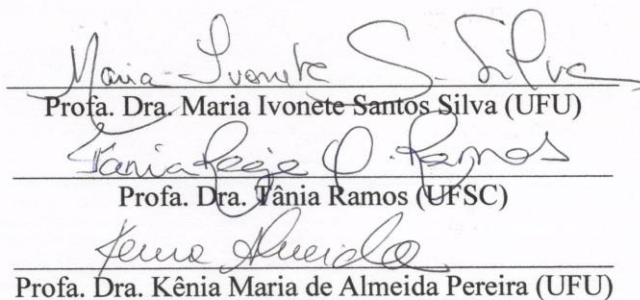 Maria Ivonete S. Silva
Profa. Dra. Maria Ivonete Santos Silva (UFU)
Tania Regi O. Ramos
Profa. Dra. Tânia Ramos (UFSC)
Kenia Almeida
Profa. Dra. Kênia Maria de Almeida Pereira (UFU)